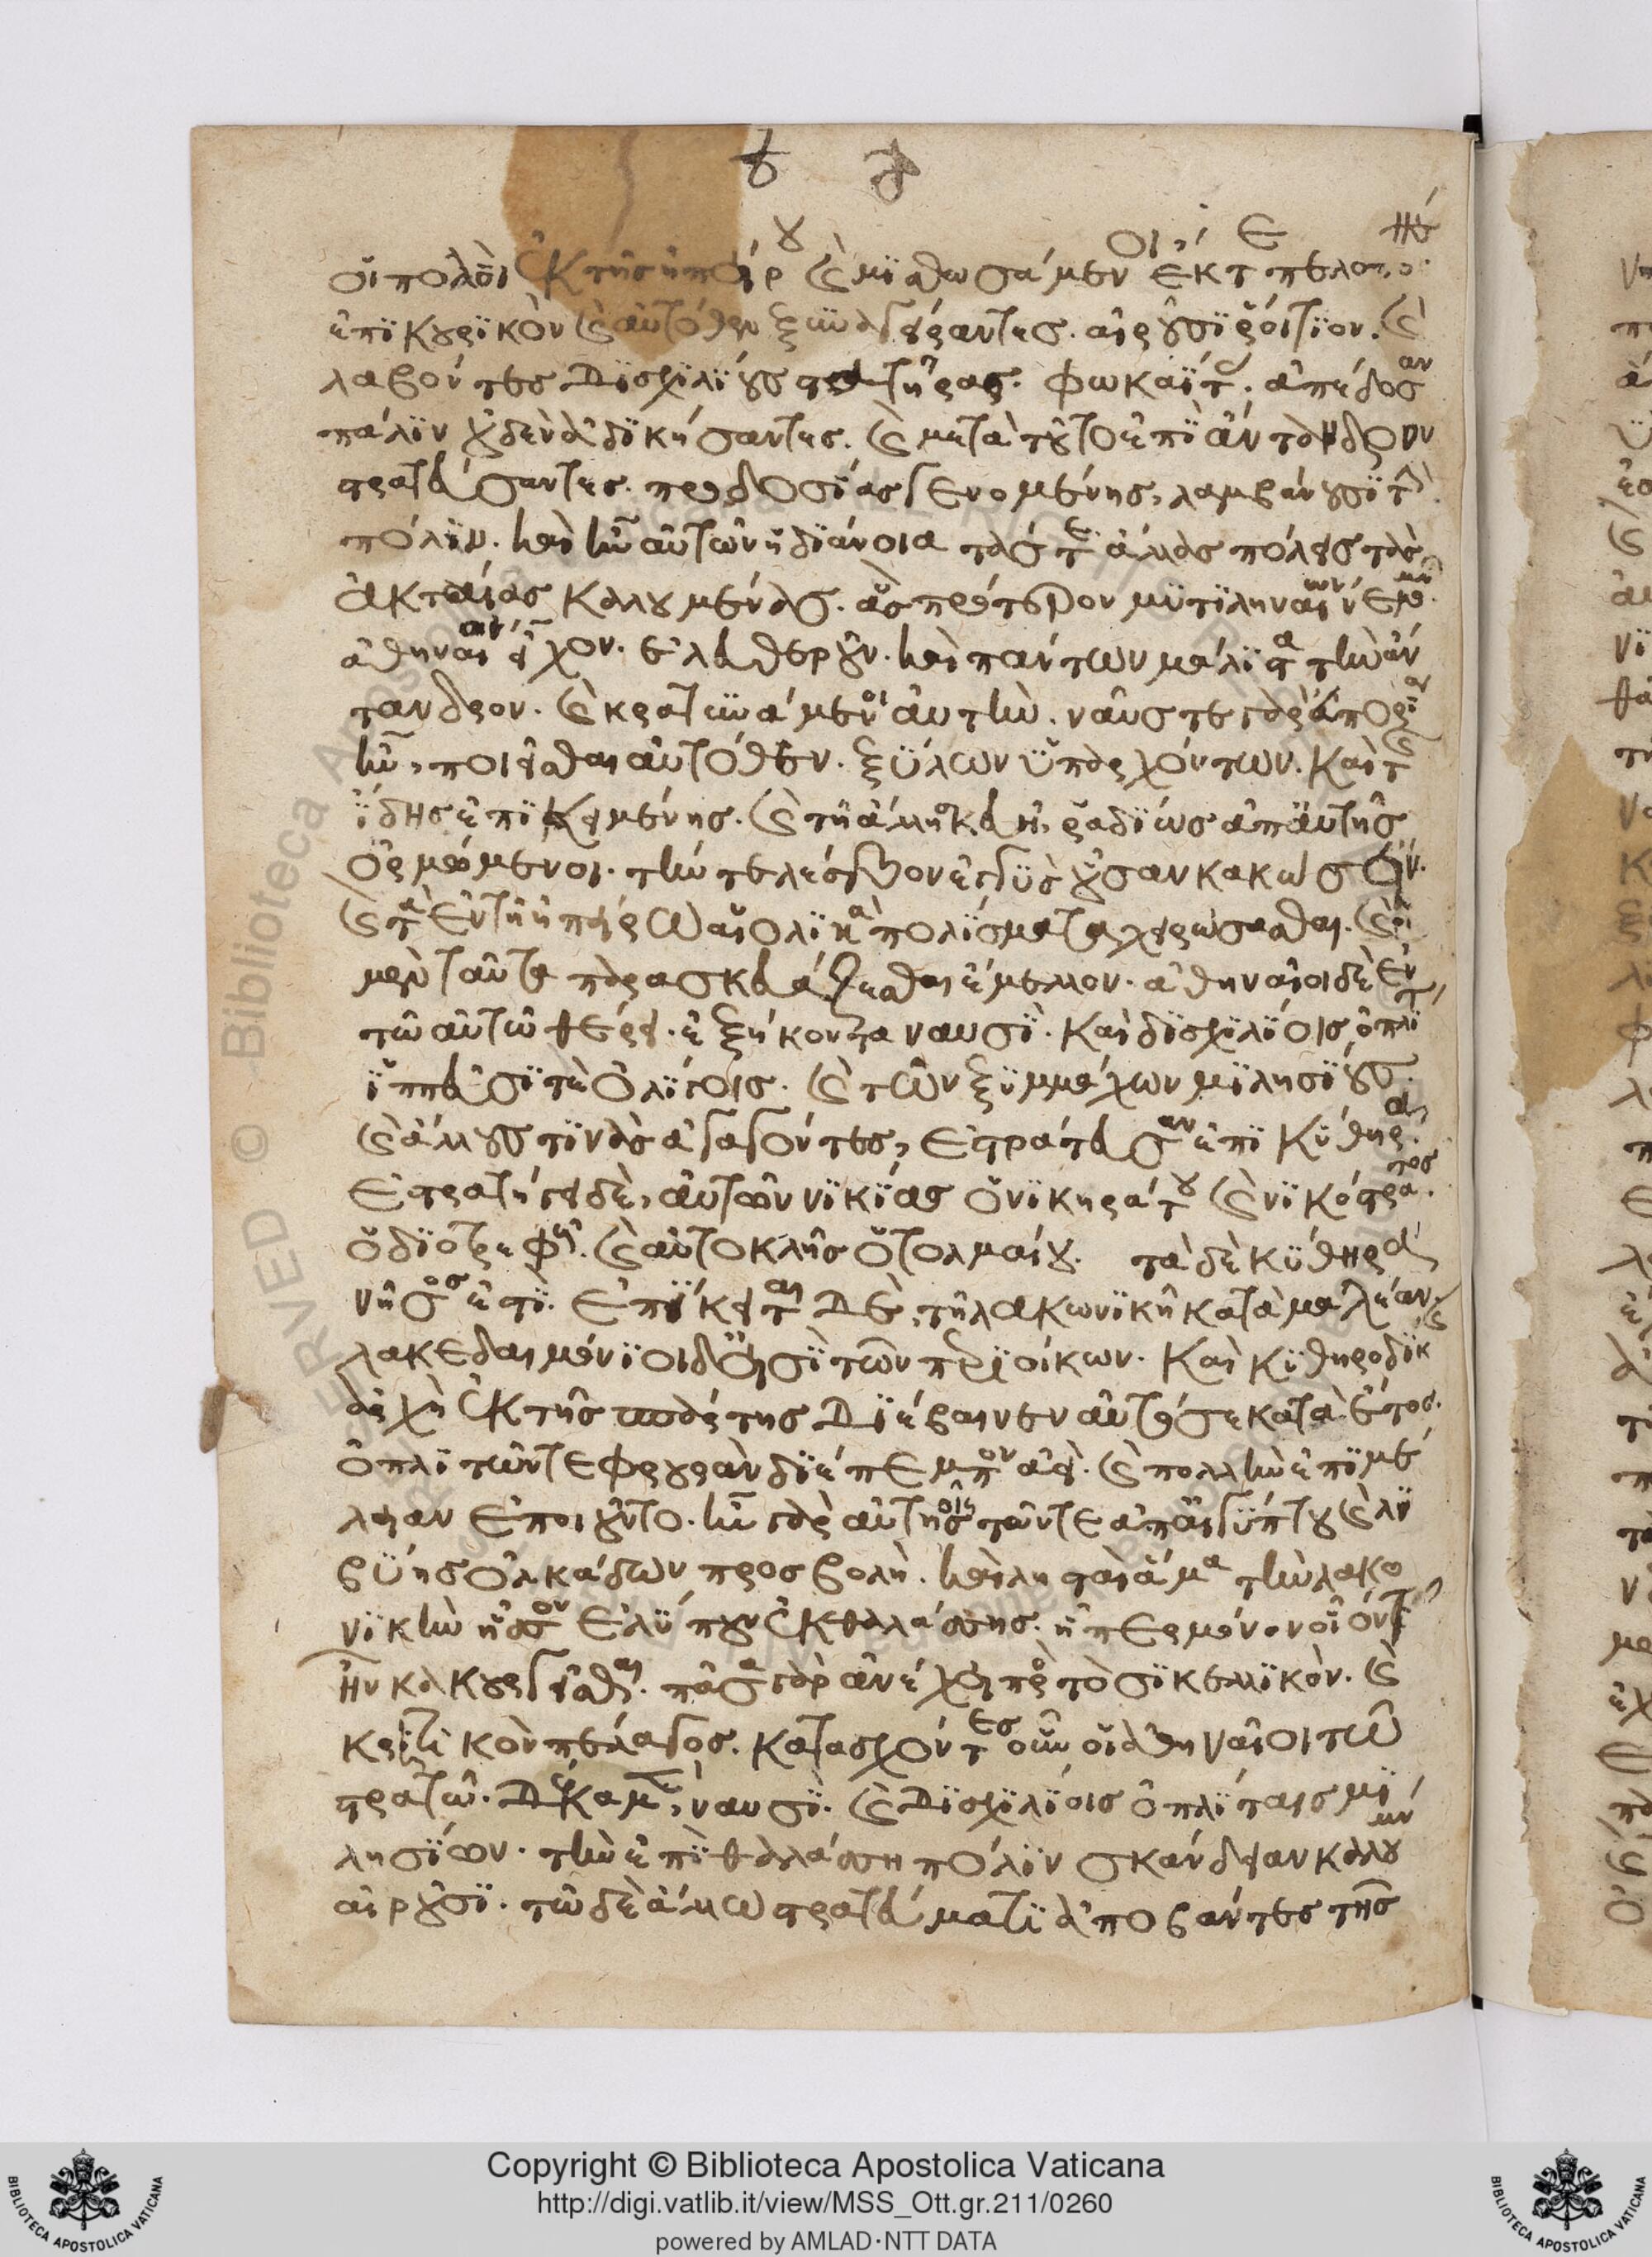 οἱ πολλοὶ ἐκ τῆς ἠπείρου καὶ μϊσθωσάμενοι ἔκ τε πελοπο
ἐπϊκουρϊκὸν καὶ αὐτόθεν ξϋναγείραντες. αἱροῦσϊ ῥοίτϊον. καὶ
λαβόντες δϊσχϊλΐους στατῆρας. φωκαΐτ. ἀπέδοσαν
πάλϊν οὐδὲν ἀδϊκήσαντες. καὶ μετὰ τοῦτο ἐπῒ ἄντανδρον
στρατεύσαντες. προδοσίας γενομένης, λαμβάνουσϊ τὴν
πόλϊν. καὶ ἦν αὐτῶν ἡ δϊάνοια τάς τε ἄλλας πόλεις τὰς
ἀκταίας καλουμένας. ἃς πρότερον μϋτϊληναίων νεμο
ἀθηναι εἶχον. ἐλευθεροῦν. καὶ πάντων μάλϊστα τὴν ἄν
τανδρον. καὶ κρατϋνάμενοι αὐτὴν. ναῦς τε γὰρ ἀπορΐα
ἦν, ποιεῖσθαι αὐτόθεν. ξϋλων ϋπαρχόντων. καὶ τῆς
ΐδης ἐπϊκειμένης. καὶ τῆ ἄλλη σκευῆ, ῥαδΐως ἀπ αὐτῆς
ὁρμώμενοι. τήν τε λέσβον ἐγγϋς οὖσαν κακώσειν.
καὶ τὰ ἐν τῆ ἠπείρω αἰολϊκὰ πολΐσματα χειρώσασθαι. καὶ οἱ
μὲν ταῦτα παρασκευάζεσθαι ἔμελλον. ἀθηναῖοι δὲ ἐν
τῶ αὐτῶ θέρει. ἑξήκοντα ναυσῒ. καὶ δϊσχϊλΐοις ὁπλΐτ
ἱππεῦσΐ τε ὀλΐγοις. καὶ τῶν ξϋμμάχων μϊλησΐους.
καὶ ἄλλους τϊνὰς ἀγαγόντες, ἐστράτευσαν ἐπῒ κϋθηρα
ἐστρατήγει δὲ, αὐτῶν νϊκΐας ὁ νϊκηράτου καὶ νϊκόστρατος
ὁ δϊοτρέφη. καὶ αὐτοκλῆς ὁ τολμαίου. τὰ δὲ κϋθηρα
νῆσος ἐστῒ. ἐπΐκειται δὲ, τῆ λακωνϊκῆ κατὰ μαλέαν.
λακεδαιμόνϊοι δ εἰσῒ τῶν περϊοίκων. καὶ κϋθηροδΐκ
ἀρχὴ ἐκ τῆς σπάρτης δϊέβαινεν αὐτόσε κατὰ ἔτος.
ὁπλϊτῶν τε φρουρὰν δϊέπεμπον ἀεὶ. καὶ πολλὴν ἐπϊμέ
λειαν ἐποιοῦντο. ἦν γὰρ αὐτοῖς τῶν τε ἀπ αἰγϋπτου καὶ λϊ
βϋης ὁλκάδων προσβολὴ. καὶ λησταὶ ἅμα τὴν λακο
νϊκὴν ἧσσον ἐλϋπουν ἐκ θαλάσσης. ἧπερ μόνον οἷόντ
ἦν κακουργεῖσθαι. πᾶσα γὰρ ἀνέχει πρὸς τὸ σϊκελϊκὸν. καὶ
κρϊτϊκὸν πέλαγος. κατασχόντες οὖν οἱ ἀθηναῖοι τῶ
στρατῶ. δέκα μὲν, ναυσῒ. καὶ δϊσχϊλΐοις ὁπλΐταις μϊ
λησΐων. τὴν ἐπῒ θαλάσση πόλϊν σκάνδειαν καλουμν
αἱροῦσϊ. τῶ δὲ ἄλλω στρατεύματϊ ἀποβάντες τῆς
Copyright © Biblioteca Apostolica Vaticana
http://digi.vatlib.it/view/MSS_Ott.gr.211/0260
powered by AMLAD·NTT DATA